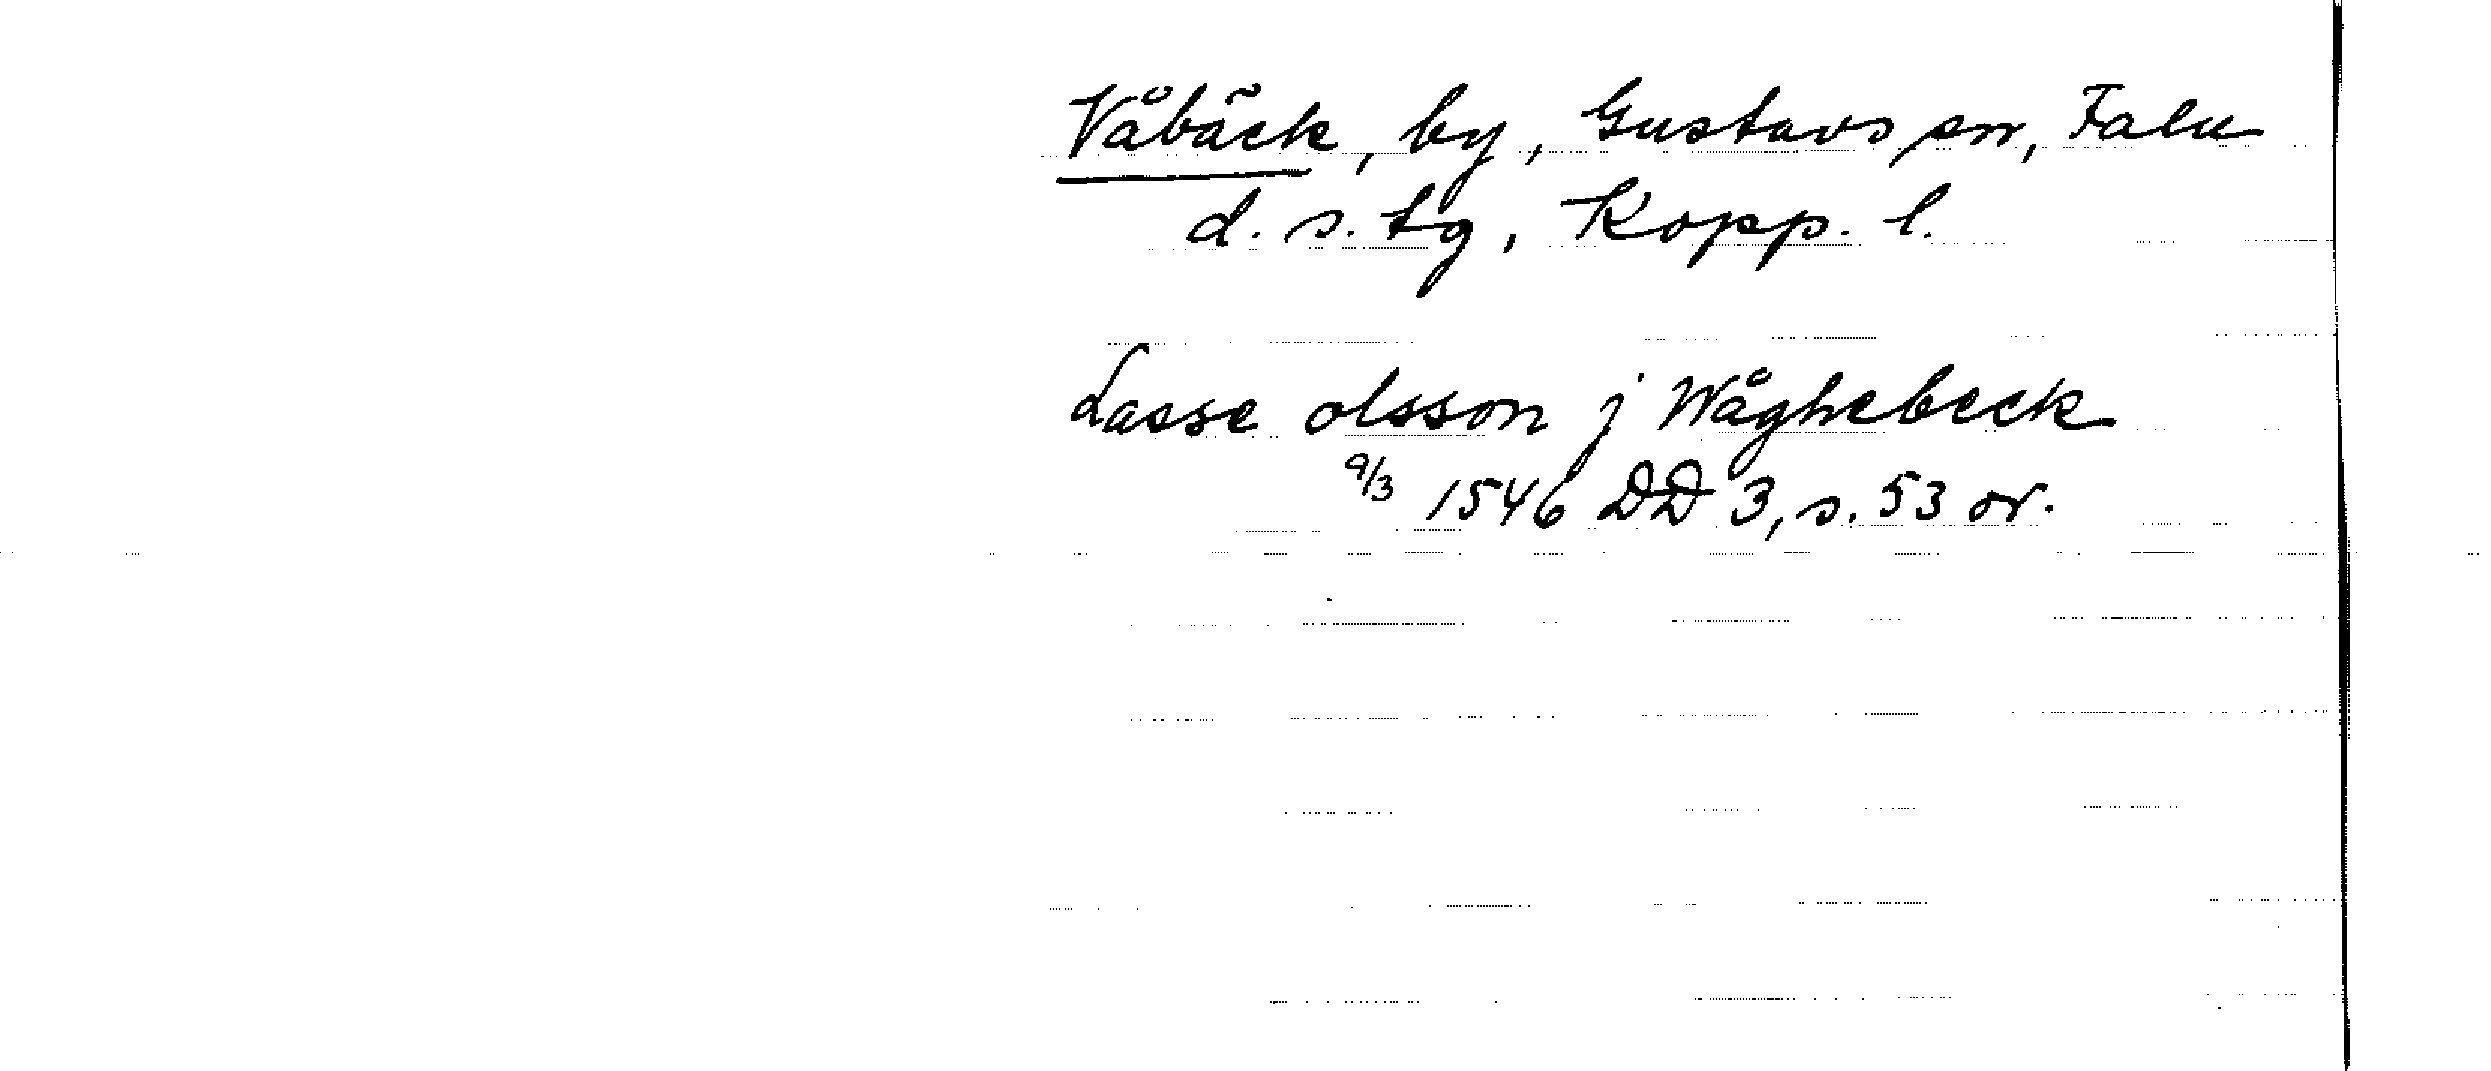 Våbäck, by, Gustavs sn, Falu
d. s. tg, Kopp. l.
Lasse olsson j Wåghebeck
9/3 1546 DD 3, s. 53 or.